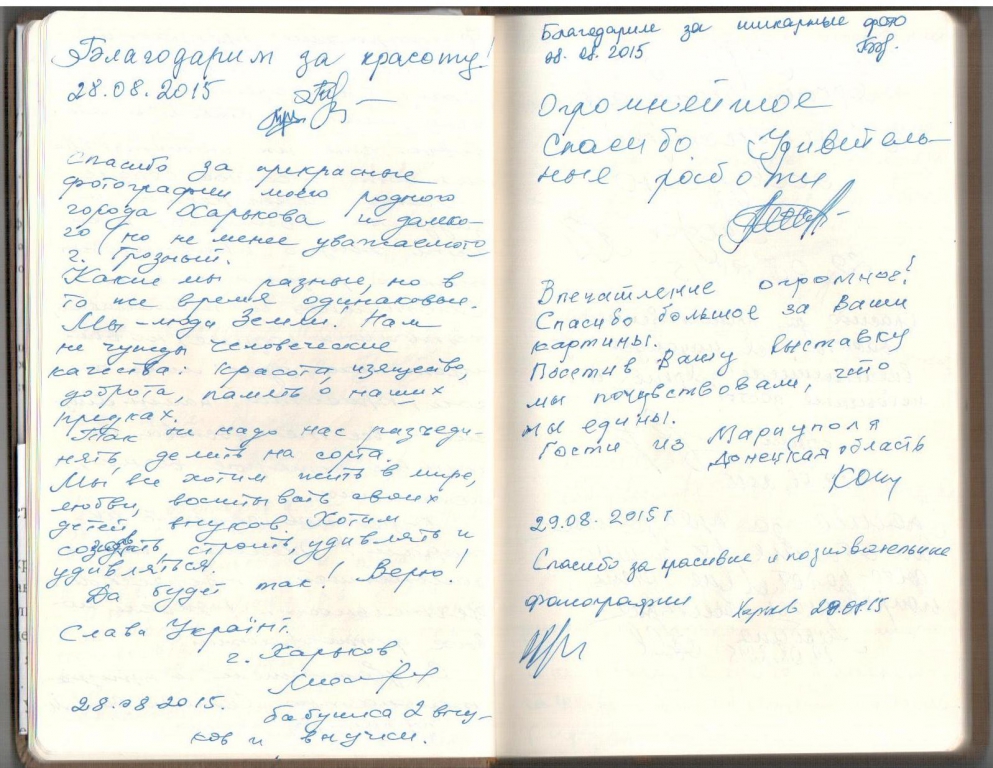 Благодарим за красоту!
28.08.2015
Спасибо за прекрасные
фотографии моего родного
города Харькова и далёко-
го (но не менее уважаемого
г. Грозный.
Какие мы разные, но в
то же время одинаковые.
Мы - люди Земли. Нам
не чужды человеческие
качества: красота, изящество,
доброта, память о наших
предках.
Так не надо нас разъеди-
нять, делить на сорта.
Мы все хотим жить в мире,
любви, воспитывать своих
детей, внуков. Хотим
создавать, строить, удивлять и
удивляться.
Да будет так! Верю!
Слава Україні.
г. Харьков
28.08.2015.
бабушка 2 вну-
ков и внучки.
Благодарим за шикарные фото
28.08.2015
Огромнейшое
спасибо. Удивитель-
ные роботи
Впечатление огромное!
Спасибо большое за Ваши
картины.
Посетив Вашу выставку
мы почувствовали, что
мы едины.
Гости из Мариуполя
Донецкая область
29.08.2015 г
Спасибо за красивые и познавательные
фотографии Харьков 29.08.15